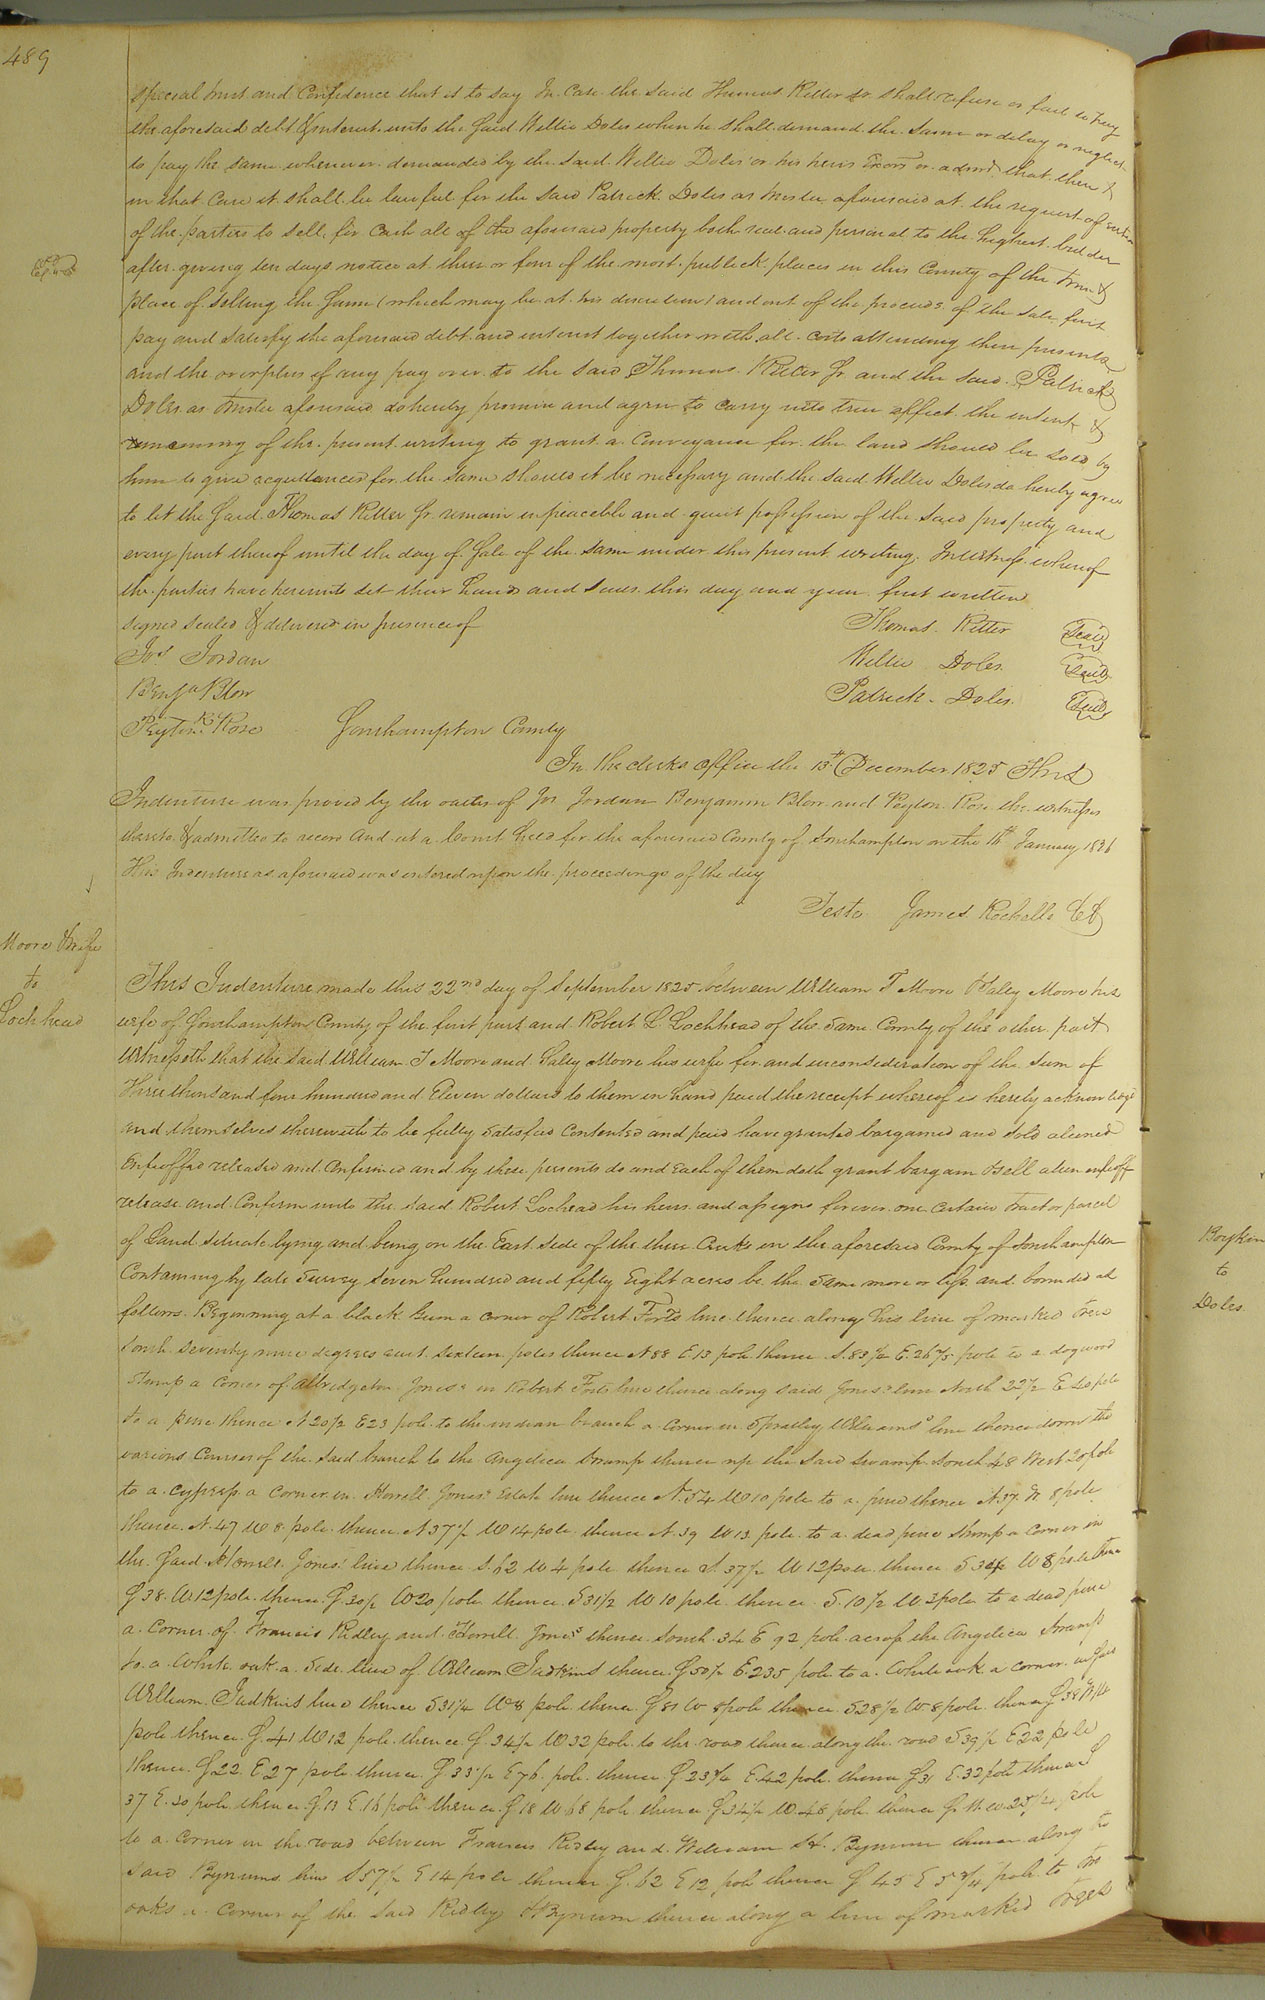 489
special trust and Confidence that is to say In Case the said Thomas Ritter Jr shall refuse or fail to pay
the aforesaid debt & interest unto the said Willie Doles when he shall demand the same or delay or neglect
to pay the same whenever demanded by the said Willie Doles or his heirs Exors or admrs that then &
in that Case it shall be lawful for the said Patrick Doles as trustee aforesaid at the request of either
of the parties to sell for Cash all of the aforesaid property both real and personal to the highest bidder
after giving ten days notice at three or four of the most publick places in this County of the time &
place of selling the same (which may be at his discretion) and out of the proceeds of the sale first
pay and satisfy the aforesaid debt and interest together with all costs attending these presents
and the overplus if any pay over to the said Thomas Ritter Jr and the said Patrick
Doles as trustee aforesaid do hereby promise and agree to carry into true effect the intent &
meaning of the present writing to grant a Conveyance for the land should be sold by
him to give acquittances for the same should it be necessary and the said Willie Doles do hereby agree
to let the said Thomas Ritter Jr remain in peaceble and quiet possession of the said property and
every part thereof until the day of Sale of the same under this present writing. In witness whereof
the parties have hereunto set their hands and seals this day and year first written
signed sealed & delivered in presence of Thomas Ritter Seal
Jos Jordan Willie Doles Seal
Benja Blow Patrick Doles Seal
Peyton R Rose Southampton County
In the clerks office the 13th December 1825 This
Indenture was proved by the oaths of Jos Jordan Benjamin Blow and Peyton Rose the witnesses
thereto & admitted to record And at a Court held for the aforesaid County of Southampton on the 16th January 1826
This Indenture as aforesaid was entered upon the proceedings of the day
Teste James Rochelle CC
Moore & wife
to
Lochhead
This Indenture made this 22nd day of September 1825 between William T Moore & Sally Moore his
wife of Southampton County of the first part and Robert L Lochhead of the same County of the other part
Witnesseth that the said William T Moore and Sally Moore his wife for and in consideration of the sum of
Three thousand four hundred and Eleven dollars to them in hand paid the receipt whereof is hereby acknowledged
and themselves therewith to be fully satisfied Contented and paid have granted bargained and sold aliened
Enfeoffed released and Confirmed and by these presents do and each of them doth grant bargain & sell alien enfeoff
release and Confirm unto the said Robert Lochead his heirs and assigns forever one certain tract or parcel
of Land situate lying and being on the East side of the three Creeks in the aforesaid County of Southampton
Containing by late survey seven hundred and fifty Eight acres be the same more or less and bounded as
follows Beginning at a black Gum a corner of Robert Forts line thence along his line of marked trees
South seventy nine degrees east sixteen poles thence N 88 E 13 pole thence S 83 1/2 E 26 pole to a dogwood
stump a corner of Albridgeton Jones's in Robert Forts line thence along said Jones's line North 22 1/2 E 40 pole
to a pine thence N 20 1/2 E 23 pole to the indian branch a corner in Spratley Williams's line thence down the
various Courses of the said branch to the Angelica Swamp thence up the said swamp South 48 West 20 pole
to a cypress a corner in Howell Jones' Estate line thence N 54 W 10 pole to a pine thence N 37 W 8 pole
thence N 47 W 8 pole thence N 37 1/2 W 14 pole thence N 59 W 13 pole to a dead pine stump a corner in
the said Howell Jones' line thence S 62 W 4 pole thence S 37 1/2 W 12 pole thence S 34 W 8 pole thence
S 38 W 12 pole thence S 30 1/2 W 20 pole thence S 31 1/2 W 10 pole thence S 10 1/2 W 3 pole to a dead pine
a Corner of Francis Ridley and Howell Jones thence South 34 E 92 pole across the Angelica Swamp
to a white oak a side line of William Judkins thence S 50 1/2 E 235 pole to a white oak a corner in said
William Judkins line thence S 31 1/4 W 8 pole thence S 81 W 8 pole thence S 28 1/2 W 8 pole thence S 38 W 14
pole thence S 41 W 12 pole thence S 34 1/2 W 32 pole to the road thence along the road S 39 1/2 E 22 pole
thence S 22 E 27 pole thence S 33 1/2 E 76 pole thence S 23 3/4 E 42 pole thence S 31 E 33 pole thence S
37 E 30 pole thence S 13 E 16 pole thence S 18 W 68 pole thence S 34 1/2 W 48 pole thence S W 25 1/4 pole
to a corner in the road between Francis Ridley and William H Bynum thence along the
said Bynums line S 57 1/2 E 14 pole thence S 62 E 12 pole thence S 45 E 5 3/4 pole to two
oaks a corner of the said Ridley & Bynum thence along a line of marked trees
Boykin
to
Doles